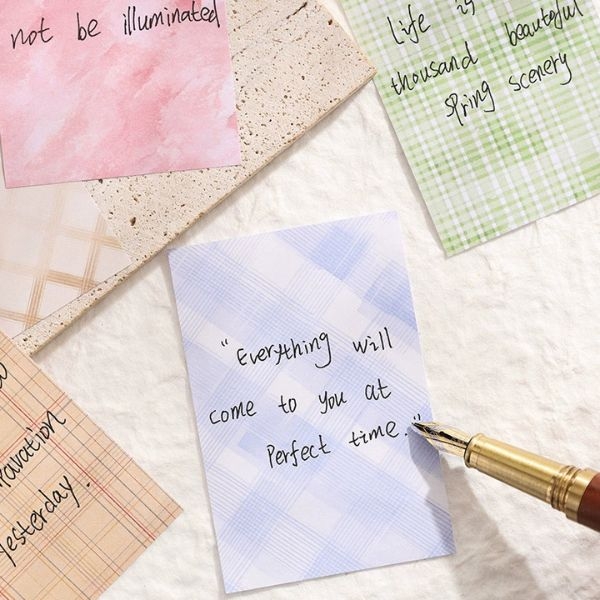 not be illuminated
Life is
thousand beautiful
Spring scenery
"Everything will
come to you at
Perfect time."
Yesterday.